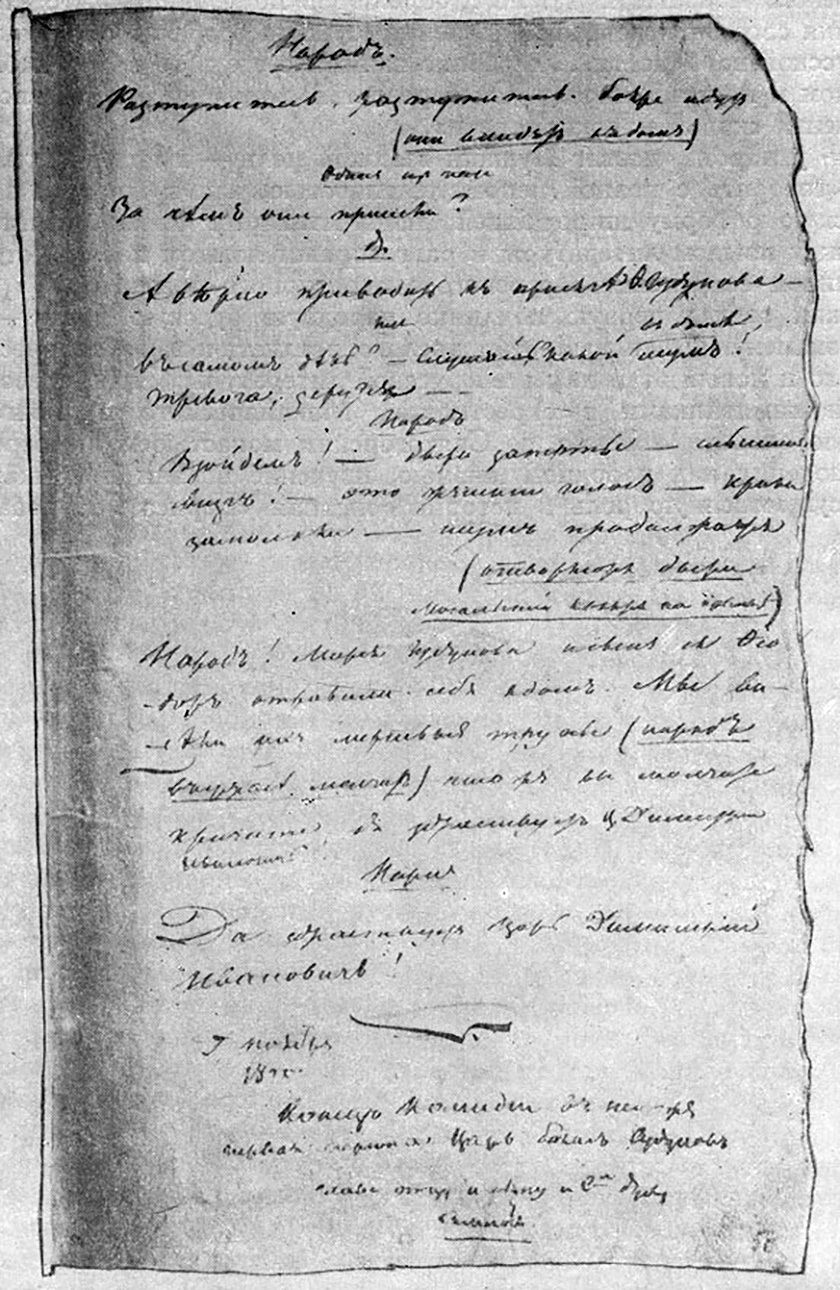 Народъ.
Разступитесь, разступитесь. бояре идутъ
(они входятъ въ домъ)
Одинъ изъ нар
За чѣмъ они пришли?
др.
А вѣрно приводить къ присягѣ Ѳ. Годунова —
въ самомъ дѣлѣ? — Слушай какой въ домѣ шумъ!
тревога, дерутся — —
Народъ
Взойдемъ! — двери заперты — слышишь
визгъ! — это женской голосъ — крики
замолкли — шумъ продолжается
(отворяются двери
Мосальскій на крыльцѣ)
Народъ! Марья Годунова и сынъ ея Ѳео-
-доръ отравили себя ядомъ. Мы ви-
-дѣли ихъ мертвые трупы (народъ
въ ужасѣ молчитъ) что жъ вы молчите
кричите, да здравствуетъ Ц. Димитрій
Ивановичъ
Народ
Да здравствуетъ Царь Димитрій
Ивановичъ!
7 ноября
1825
Конецъ Комидіи въ ней-же
первая персона Царь Борисъ Годуновъ
слава отцу и сыну и Св. духу
аминь.